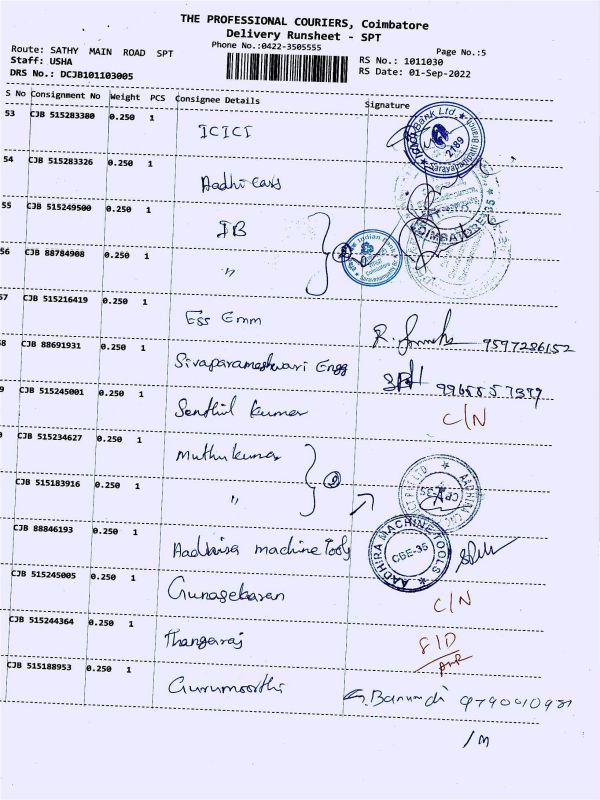 THE PROFESSIONAL COURIERS, Coimbatore
Delivery Runsheet - SPT
Phone No.:0422-3505555
Page No.:5
Route: SATHY MAIN ROAD SPT
Staff: USHA
DRS No.: DCJB101103005
RS No.: 1011030
RS Date: 01-Sep-2022
S No Consignment No Weight PCS Consignee Details Signature
53 CJB 515283380 0.250 1 ICICI
54 CJB 515283326 0.250 1 Aadhi cars
55 CJB 515249500 0.250 1 IB
56 CJB 88784908 0.250 1 "
57 CJB 515216419 0.250 1 Ess Emm 9597286152
58 CJB 88691931 0.250 1 Sivaparameshwari Engg
9 CJB 515245001 0.250 1 Senthil kumar C/N
0 CJB 515234627 0.250 1 Muthukumar
CJB 515183916 0.250 1 "
CJB 88846193 0.250 1 machine Tools
AADHIRA MACHINE TOOLS
CBE-35
CJB 515245005 0.250 1 Gunasekaran C/N
CJB 515244364 0.250 1 Thangaraj
CJB 515188953 0.250 1 Gurumoorthi
Bank Ltd.
2189
Indian Bank
Coimbatore
COIMBATORE